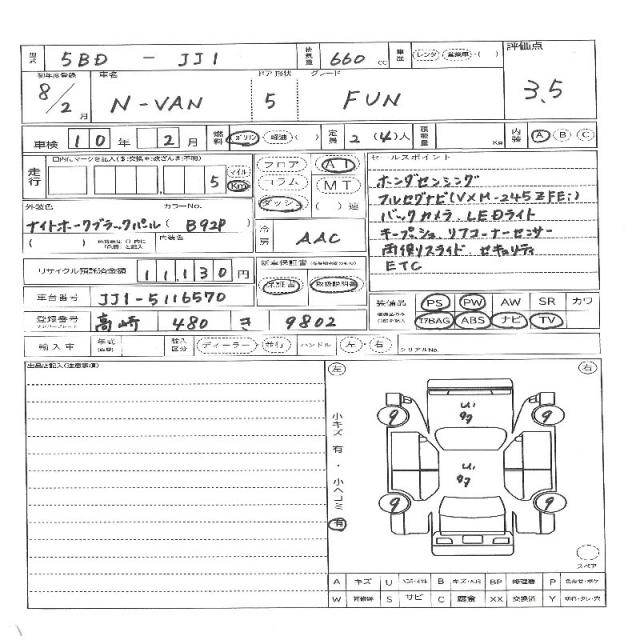 型式 5BD - JJ1 排気量 660 cc 車歴 レンタ 営業車・( ) 評価点
初年度登録 車名 ドア 形状 グレード
8/2 月 N-VAN 5 FUN 3.5
車検 10 年 2 月 燃料 ガソリン 軽油 ( ) 定員 2 (4) 人 積載量 Kg 内装 A B C
走行 5 マイル Km フロア AT セールスポイント
コラム MT ホンダセンシング
外装色 カラーNo. ダッシュ ( )速 フルセグナビ(VXM-245ZFEi)
ナイトホークブラックパール ( B92P バックカメラ LEDライト
( ) 内装色 冷房 AAC キープッシュ リアコーナーセンサー
両側スライド セキュリティ
リサイクル預託済金額 11,130 円 新車保証書 ETC
保証書 取扱説明書
車台番号 JJ1-5116570 装備品 PS PW AW SR カワ
登録番号 高崎 480 き 9802 エアBAG ABS ナビ TV
輸入車 年式 輸入区分 ディーラー・並行 ハンドル 左・右 シリアルNo.
出品店記入(注意事項) 左 右
小キズ 有・小ヘコミ 有
9 9
9 9
スペア
A キズ U B キズ・ BP 修理書 P
W S サビ C 腐食 XX 交換済 Y